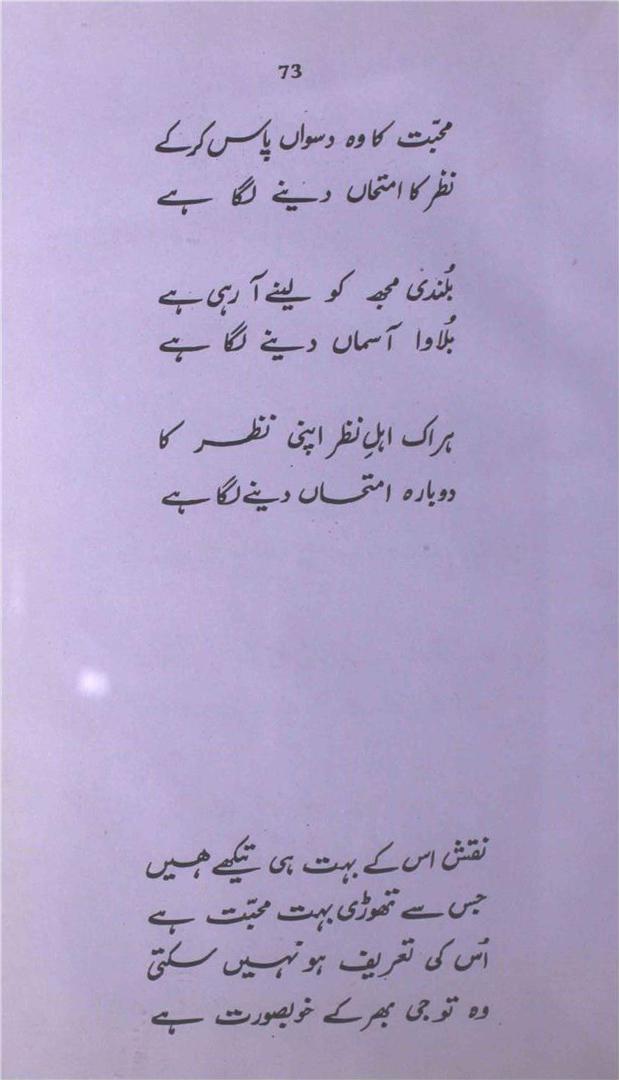 73
محبّت کا وہ دسواں پاس کر کے
نظر کا امتحاں دینے لگا ہے
بُلندی مجھ کو لینے آ رہی ہے
بُلاوا آسماں دینے لگا ہے
ہر اک اہلِ نظر اپنی نظر کا
دوبارہ امتحاں دینے لگا ہے
نقش اس کے بہت ہی تیکھے ہیں
جس سے تھوڑی بہت محبّت ہے
اُس کی تعریف ہو نہیں سکتی
وہ تو جی بھر کے خوبصورت ہے